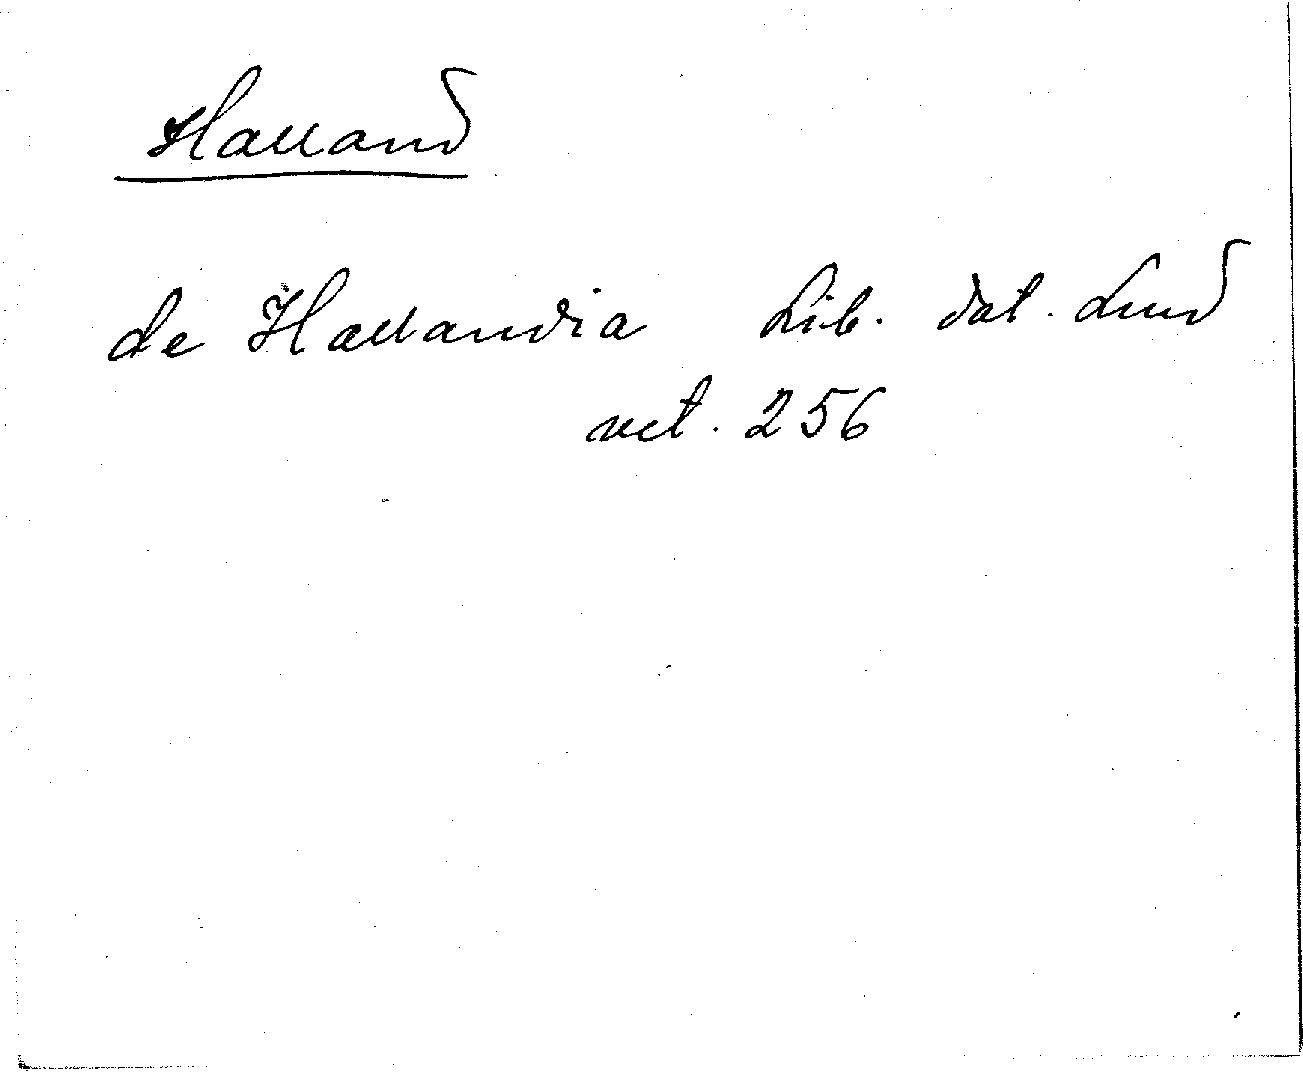 Halland
de Hallandia Lib. dat. Lund
vet. 256